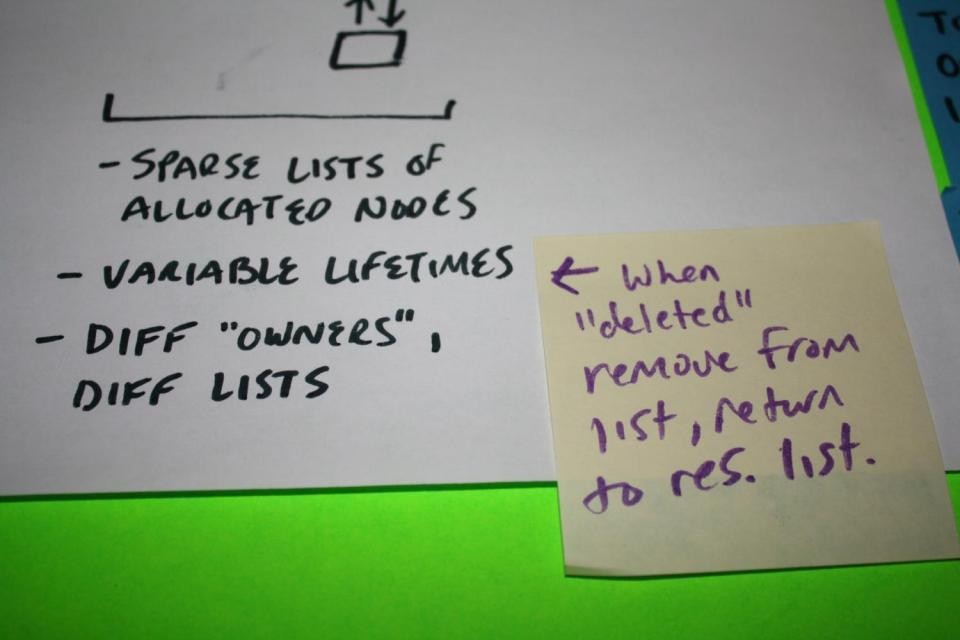 - SPARSE LISTS OF
ALLOCATED NODES
- VARIABLE LIFETIMES
- DIFF "OWNERS",
DIFF LISTS
← When
"deleted"
remove from
list, return
to res. list.